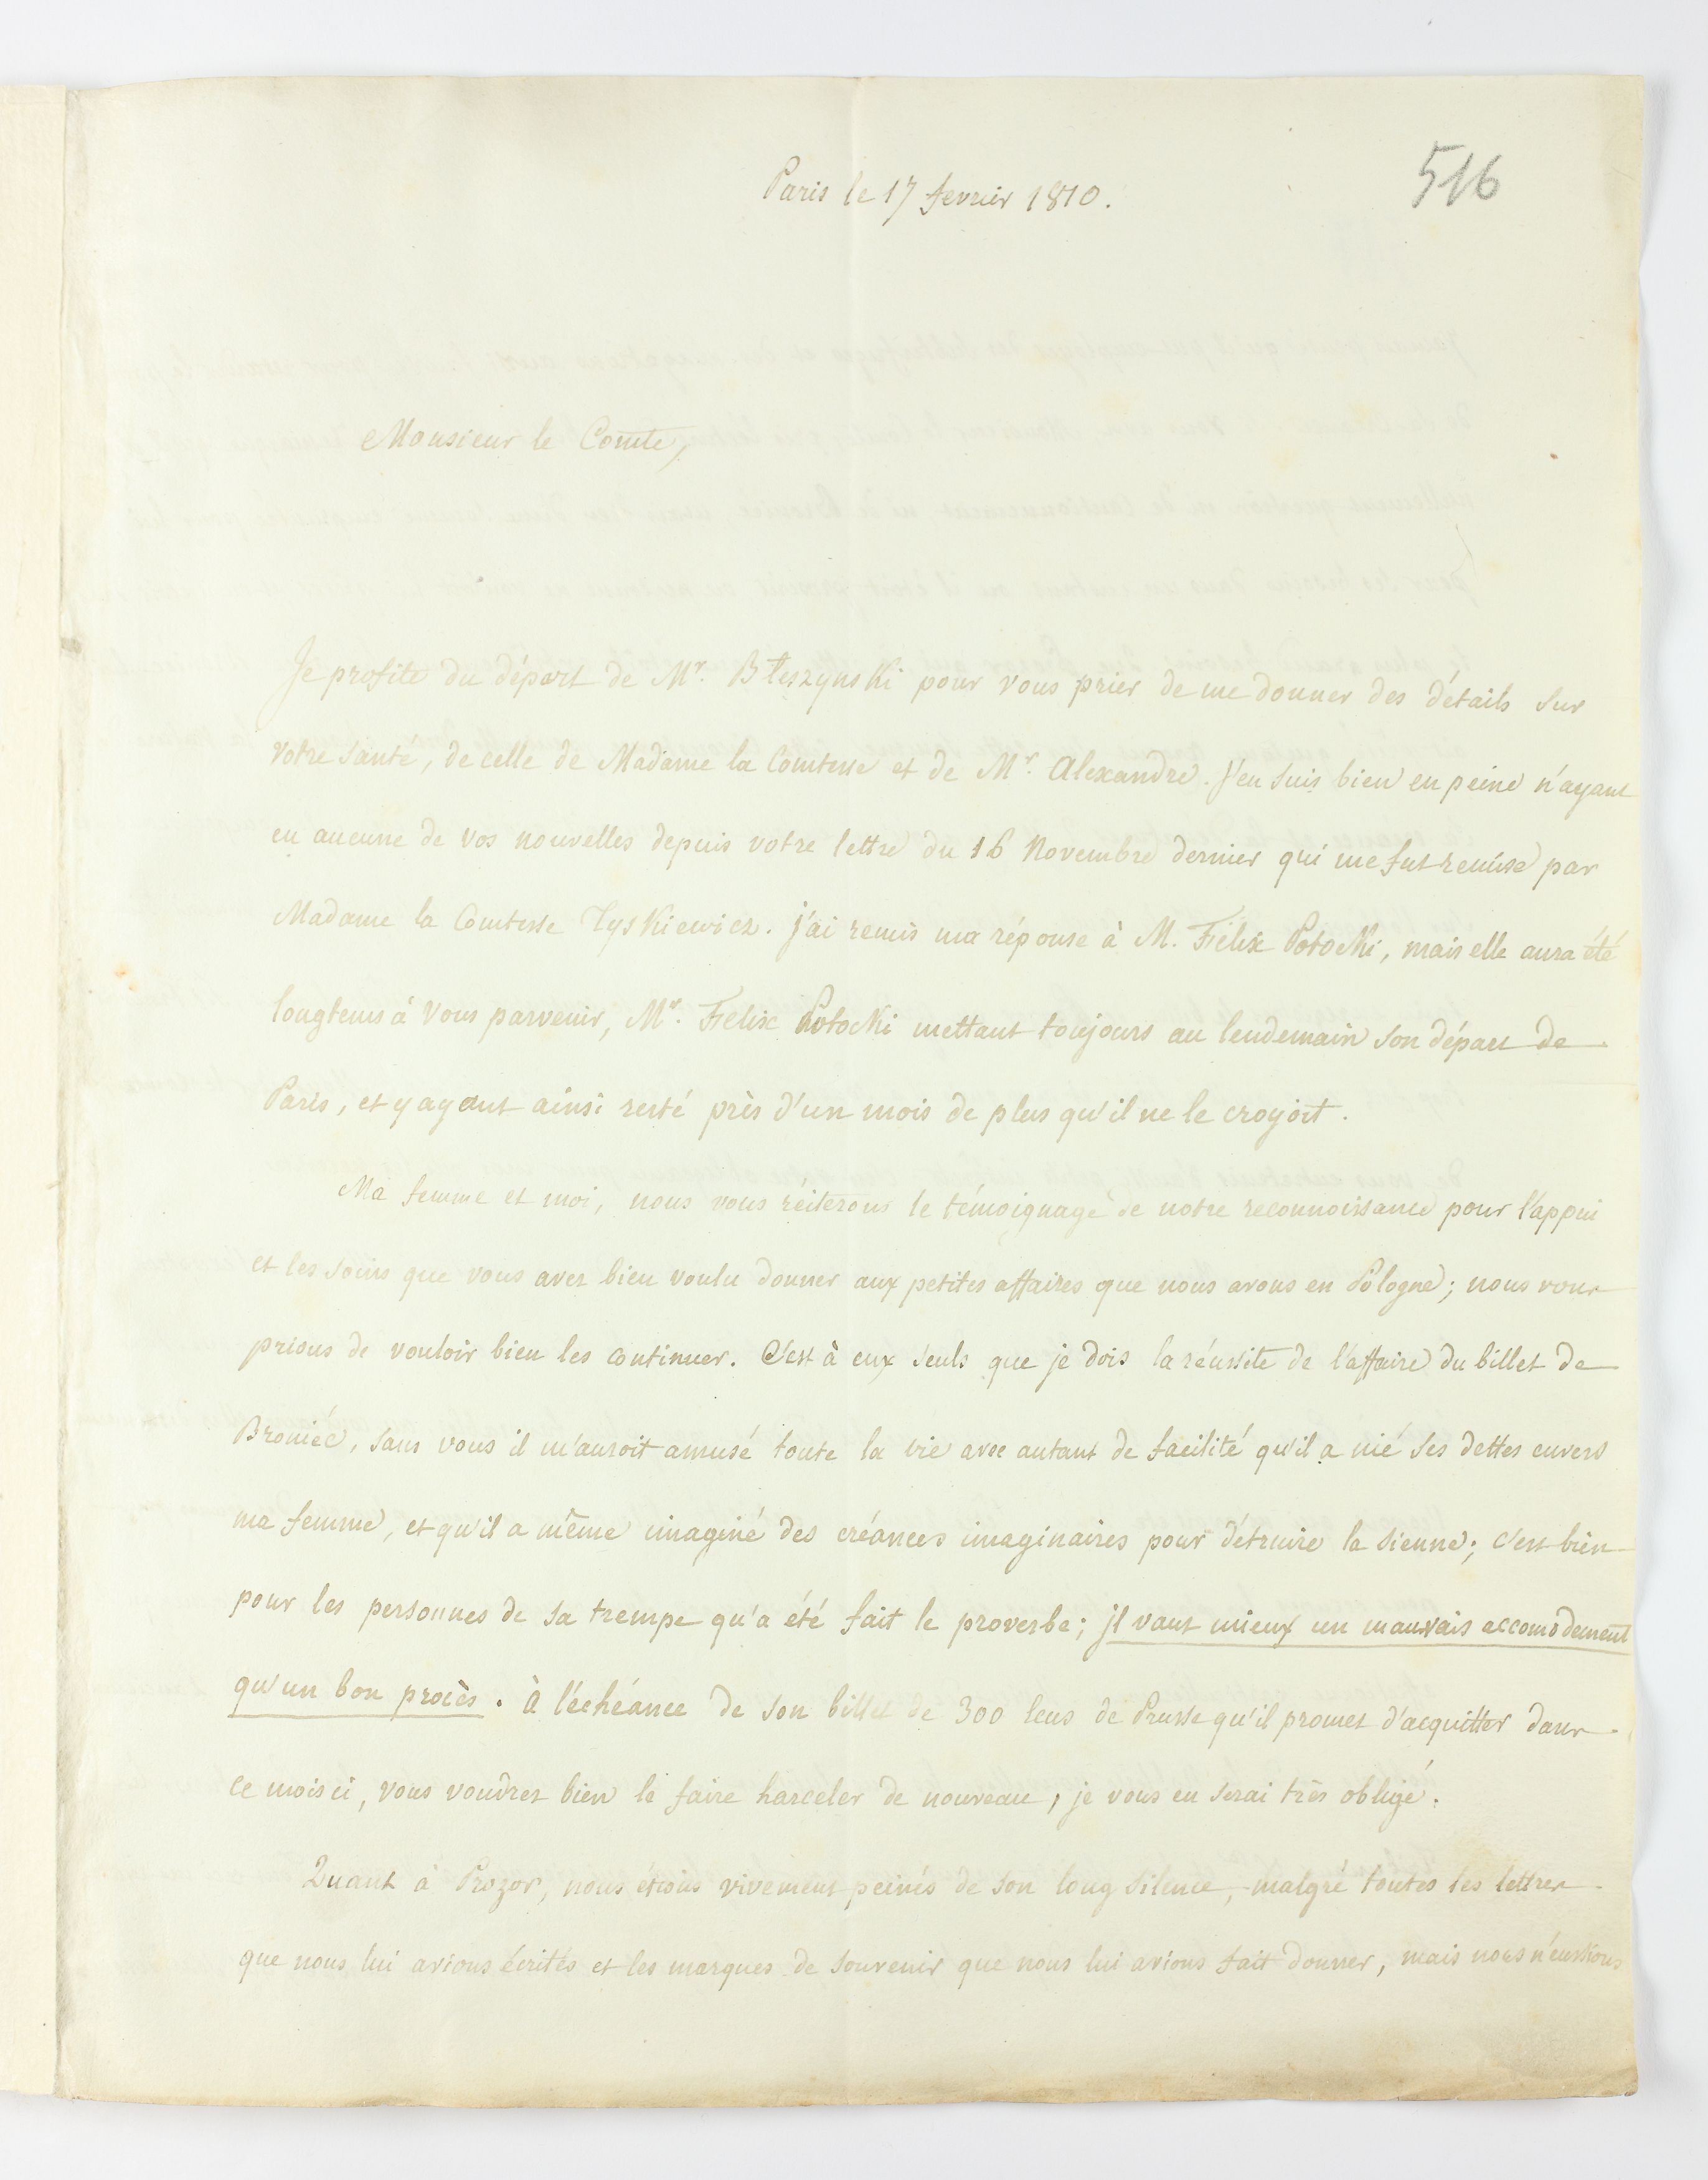 516
Paris le 17 fevrier 1810.
Monsieur le Comte,
Je profite du départ de Mr. Błeszynski pour vous prier de me donner des détails sur
votre santé, de celle de Madame la Comtesse et de Mr. Alexandre. J'en suis bien en peine n'ayant
eu aucune de vos nouvelles depuis votre lettre du 16 Novembre dernier qui me fut remise par
Madame la Comtesse Tyskiewicz. j'ai remis ma réponse à M. Félix Potocki, mais elle aura été
longtems à vous parvenir, Mr. Felix Potocki mettant toujours au lendemain son départ de
Paris, et y ayant ainsi resté près d'un mois de plus qu'il ne le croyoit.
Ma femme et moi, nous vous réiterons le témoignage de notre reconnoissance pour l'appui
et les soins que vous avez bien voulu donner aux petites affaires que nous avons en Pologne; nous vous
prions de vouloir bien les continuer. C'est à eux seuls que je dois la réussite de l'affaire du billet de
Broniéc, sans vous il m'auroit amusé toute la vie avec autant de facilité qu'il a nié ses dettes envers
ma femme, et qu'il a même imaginé des créances imaginaires pour détruire la sienne; c'est bien
pour les personnes de sa trempe qu'a été fait le proverbe; jl vaut mieux un mauvais accomodement
qu'un bon procès. à l'échéance de son billet de 300 écus de Prusse qu'il promet d'acquitter dans
ce mois ci, vous voudrez bien le faire harceler de nouveau, je vous en serai très obligé.
Quant à Prozor, nous étions vivement peinés de son long silence, malgré toutes les lettres
que nous lui avions écrites et les marques de souvenir que nous lui avions fait donner, mais nous n'eussions